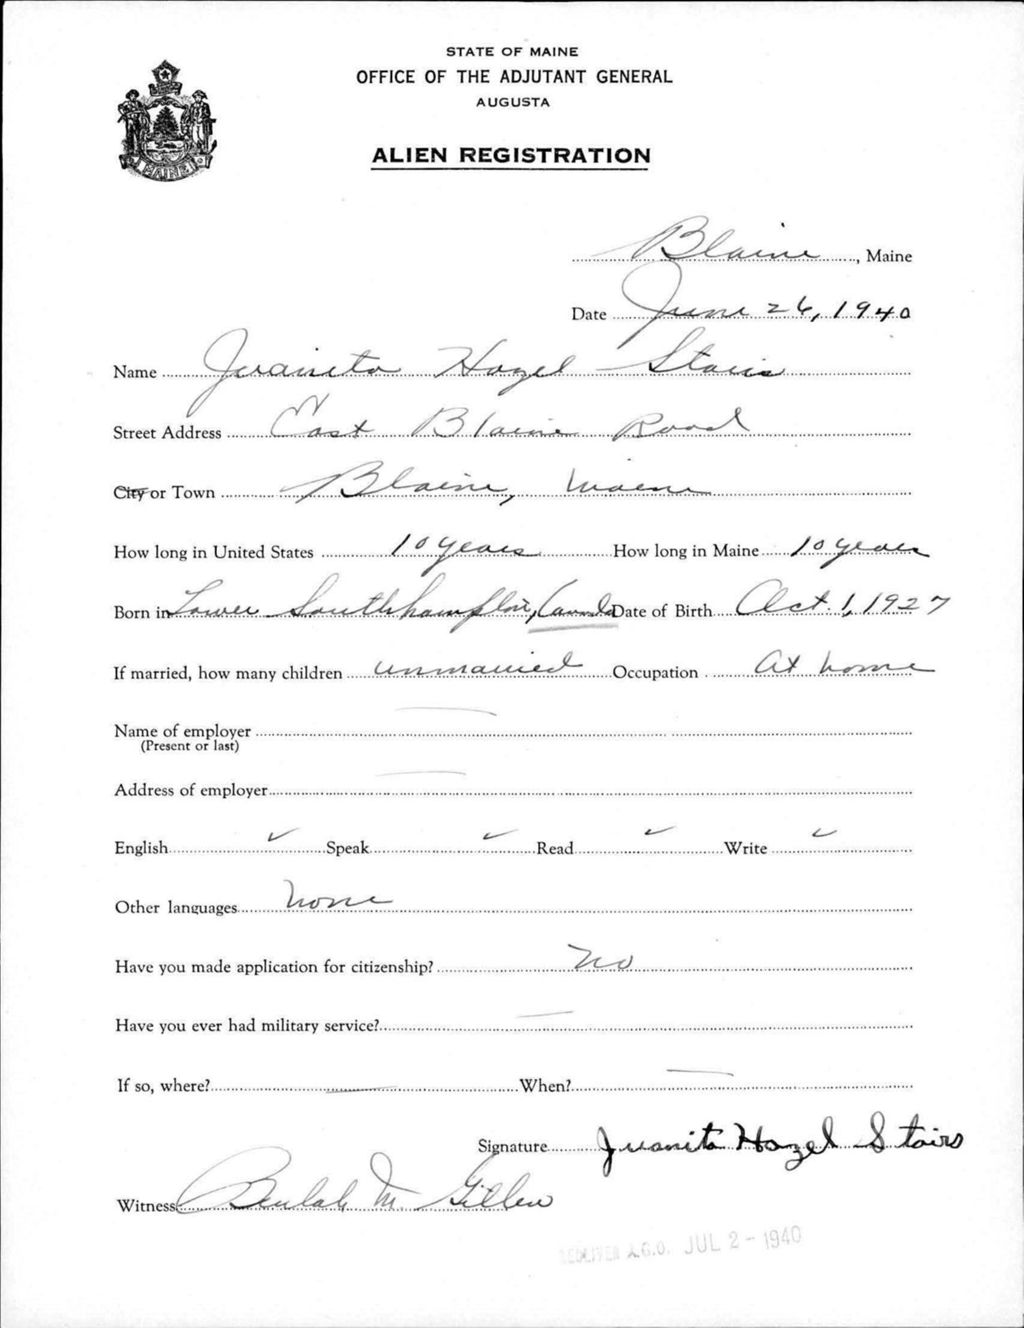 STATE OF MAINE
OFFICE OF THE ADJUTANT GENERAL
AUGUSTA
ALIEN REGISTRATION
MAINE
Blaine, Maine
Date June 26, 1940
Name Juanita Hazel Stairs
Street Address East Blaine Road
City or Town Blaine, Maine
How long in United States 10 years How long in Maine 10 years
Born in Lower Southhampton, Canada Date of Birth Oct. 1, 1927
If married, how many children unmarried Occupation At home
Name of employer —
(Present or last)
Address of employer —
English ✓ Speak ✓ Read ✓ Write ✓
Other languages none
Have you made application for citizenship? No
Have you ever had military service? —
If so, where? — When? —
Signature Juanita Hazel Stairs
Witness Beulah M. Gillen
A.G.O. JUL 2 - 1940